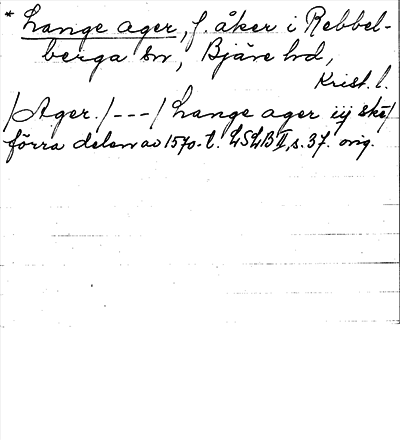 * Lange ager, f. åker i Rebbel-
berga sn, Bjäre hd,
Krist. l.
/Ager./---/ Lange ager iij ske/
förra delen av 1570-t. LSLB II, s. 37. orig.